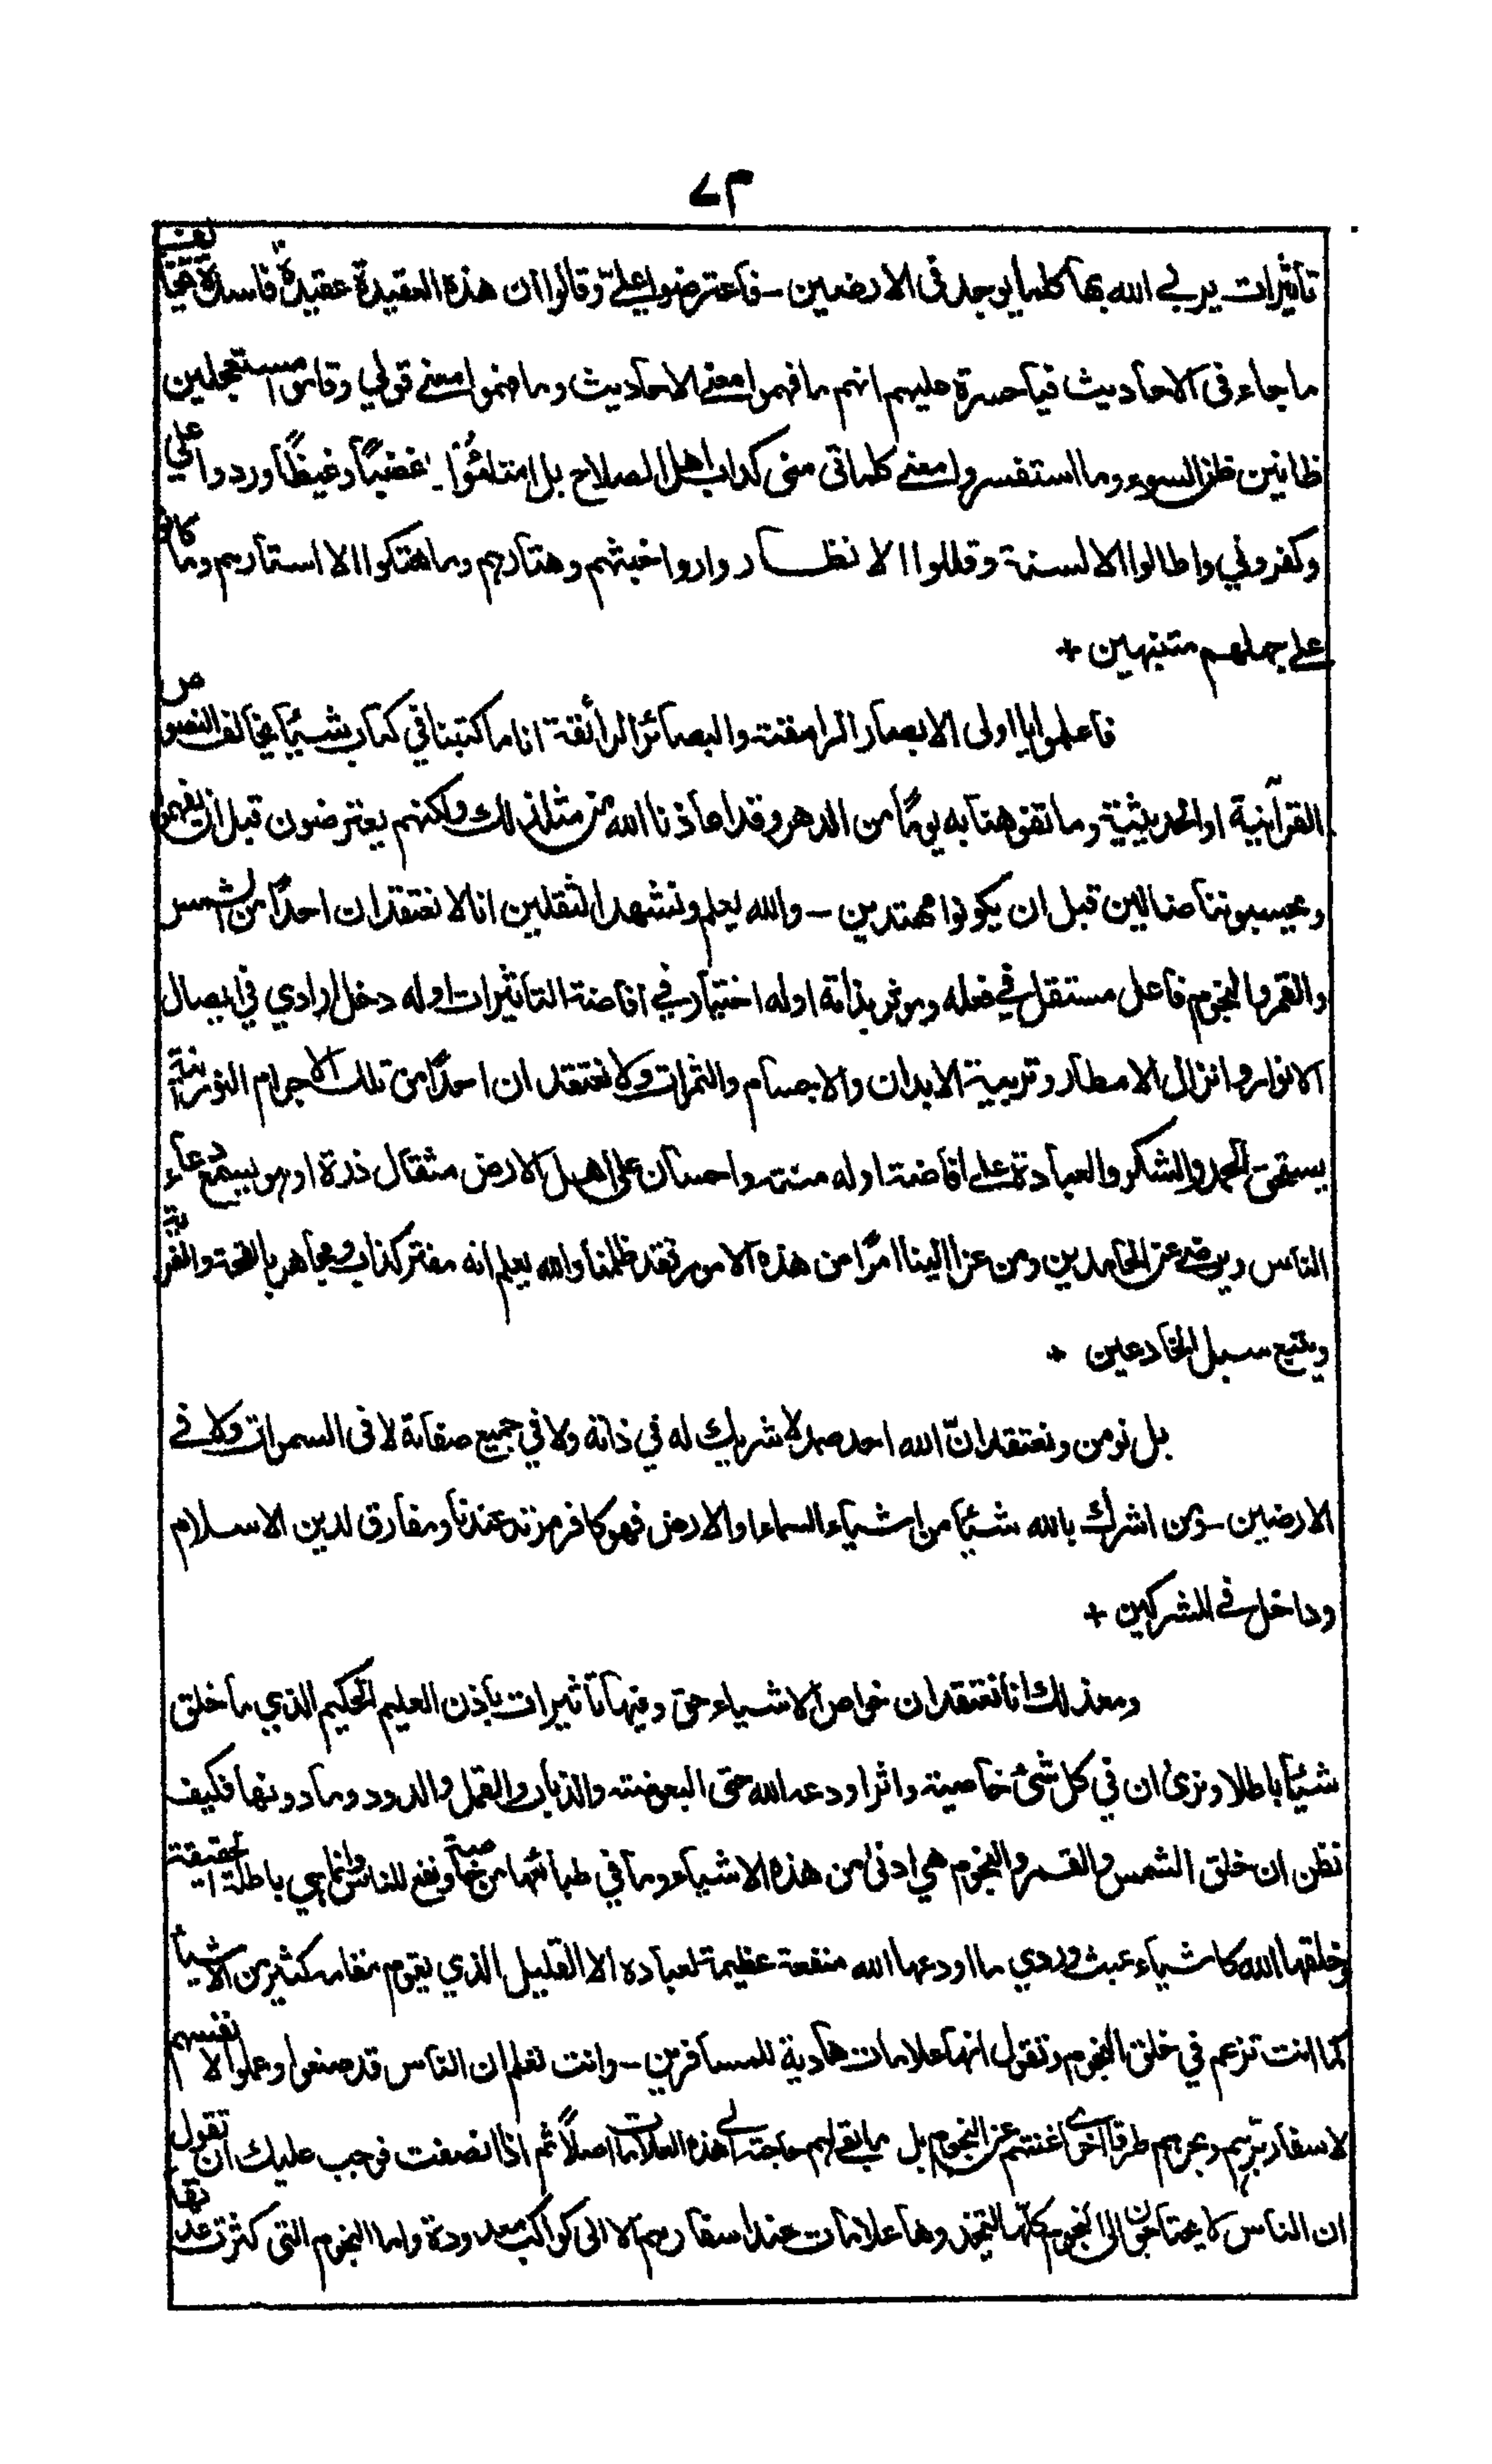 ٧٣
تأثيرات يربي الله بها كلما يوجد في الارضين - فاعترضوا علي وقالوا ان هذه العقيدة عقيدة فاسدة تخالف
ما جاء في الاحاديث فيا حسرة عليهم انهم ما فهموا معنے الاحاديث وما فهموا معنے قولي وقاموا مستعجلين
ظانين ظن السوء وما استفسروا معنے كلماتي مني كداب اهل الصلاح بل امتلئوا غضبًا وغيظًا وردوا علي
وكفروني واطالوا الالسنة وقللوا الانظار واروا خبثهم وهتارهم وما هتكوا الا استارهم وما كانوا
علے جهلهم متنبهين +
فاعلموا يا اولى الابصار الرامقة والبصائر الرائقة انا ما كتبنا في كتاب شيئًا يخالف النصوص
القرآنية او الحديثية وما تفوهنا به يومًا من الدهر وقد اعاذنا الله من مثل ذلك ولكنهم يعترضون قبل ان يفهموا
ويحسبوننا ضالين قبل ان يكونوا مهتدين - والله يعلم ونشهد الثقلين انا لا نعتقد ان احدًا من الشمس
والقمر والنجوم فاعل مستقل في فعله وموثر بذاته او له اختيار في افاضة التاثيرات او له دخل ارادي في ايصال
الانوار وانزال الامطار وتربية الابدان والاجسام والثمرات ولا نعتقد ان احدًا من تلك الاجرام النورانية
يستحق الحمد والشكر والعبادة علے افاضة او له منة واحسان على اهل الارض مثقال ذرة او هو يسمع دعاء
الناس ويرضے عن الحامدين ومن عزا الينا امرًا من هذه الامور فقد ظلمنا والله يعلم انه مفتر كذاب ومجاهر بالقحة والفرية
ويتبع سبل الخادعين +
بل نومن ونعتقد انّ الله احد صمد لا شريك له في ذاته ولا في جميع صفاته لا في السموات ولا في
الارضين - ومن اشرك بالله شيئًا من اشياء السماء او الارض فهو كافر مرتد عندنا ومفارق لدين الاسلام
وداخل في المشركين +
ومع ذلك انا نعتقد ان خواص الاشياء حق وفيها تاثيرات باذن العليم الحكيم الذي ما خلق
شيئًا باطلا ونرى ان في كل شئ خاصية واثرا ودعه الله حتى البعوضة والذباب والقمل والدود وما دونها فكيف
نظن ان خلق الشمس والقمر والنجوم هي ادنى من هذه الاشياء وما في طبائعها من خاصية ونفع للناس وانما هي باطلة الحقيقة
وخلقها الله كاشياء عبث وردي ما اودعها الله منفعة عظيمة لعباده الا القليل الذي يقوم مقامه كثير من الاشياء
كما انت تزعم في خلق النجوم وتقول انها علامات هادية للمسافرين - وانت تعلم ان الناس قد صنعوا وعملوا لانفسهم
لاسفار برهم وبحرهم طرقا اخرى اغنتهم عن النجوم بل ما بقے لهم حاجة الے هذه العلامات اصلاً ثم اذا انصفت فوجب عليك ان تقول
ان الناس لا يحتاجون الى النجوم كلها ليتخذوها علامات عند اسفارهم الا الى كواكب معدودة واما النجوم التي كثرت عدتها